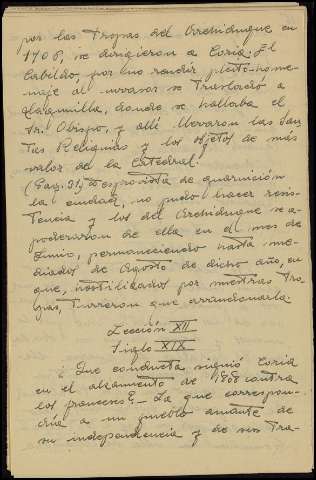 por las Tropas del Archiduque en
1706, se dirigieron a Coria. El
Cabildo, por no rendir pleito-home-
naje al invasor se trasladó a
Zarquilla, donde se hallaba el
Sr. Obispo, y allí llevaron las San-
tas Reliquias y los objetos de más
valor de la Catedral.
(Pag. 91) Desprovista de guarnición
la ciudad, no pudo hacer resis-
tencia y los del Archiduque se a-
poderaron de ella en el mes de
Junio, permaneciendo hasta me-
diados de Agosto de dicho año, en
que, hostilizados por nuestras Tro-
pas, tuvieron que abandonarla.
Lección XII
Siglo XIX
¿Que conducta siguió Coria
en el alzamiento de 1808 contra
los franceses? - La que correspon-
día a un pueblo amante de
su independencia y de sus Tra-